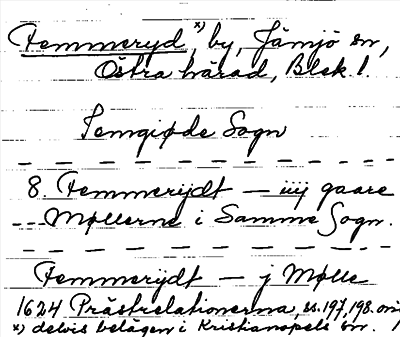 Femmeryd x), by, Jämjö sn,
Östra härad, Blek l.
Jemgiøde Sogn
8. Femmerijdt — iiij gaare
--- Møllerne i Samme Sogn.
Femmerijdt — j Mølle
1624 Prästrelationerna, ss. 197, 198.
x) delvis belägen i Kristianopels sn.